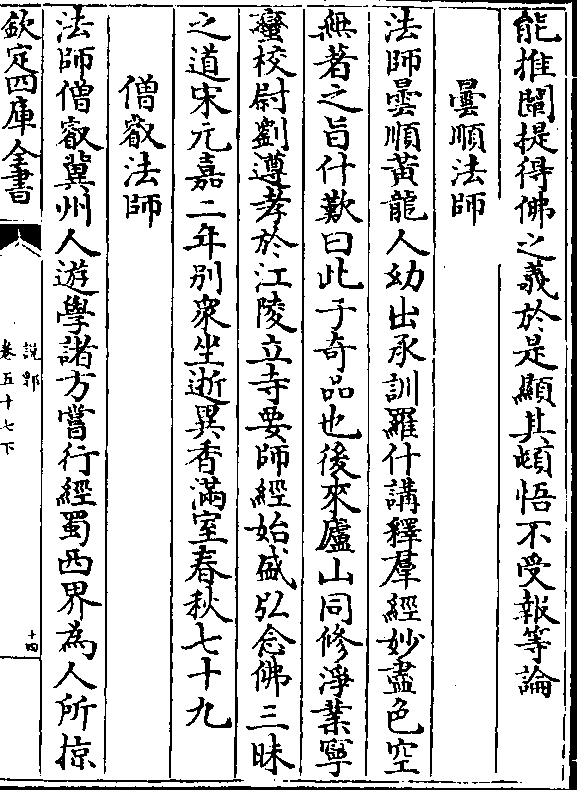 能推闡提得佛之義於是顯其頓悟不受報等論
曇順法師
法師曇順黃龍人幼出承訓羅什講釋羣經妙盡色空
無著之旨什歎曰此子奇品也後來廬山同修淨業寧
蠻校尉劉遵孝於江陵立寺要師經始盛弘念佛三昧
之道宋元嘉二年別衆坐逝異香滿室春秋七十九
僧叡法師
法師僧叡冀州人遊學諸方嘗行經蜀西界為人所掠
欽定四庫全書
說郛
卷五十七下
十四